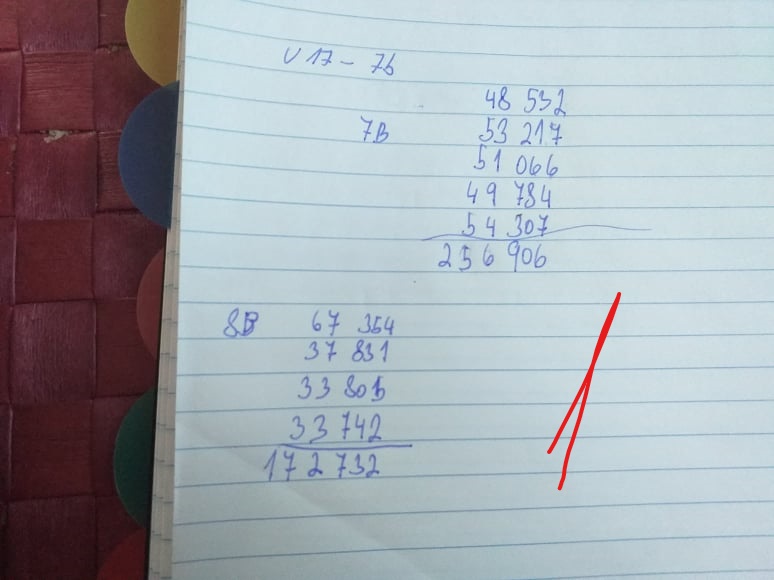 U 17 - 76
48 532
7B 53 217
51 066
49 784
54 307
256 906
8B 67 354
37 831
33 805
33 742
172 732